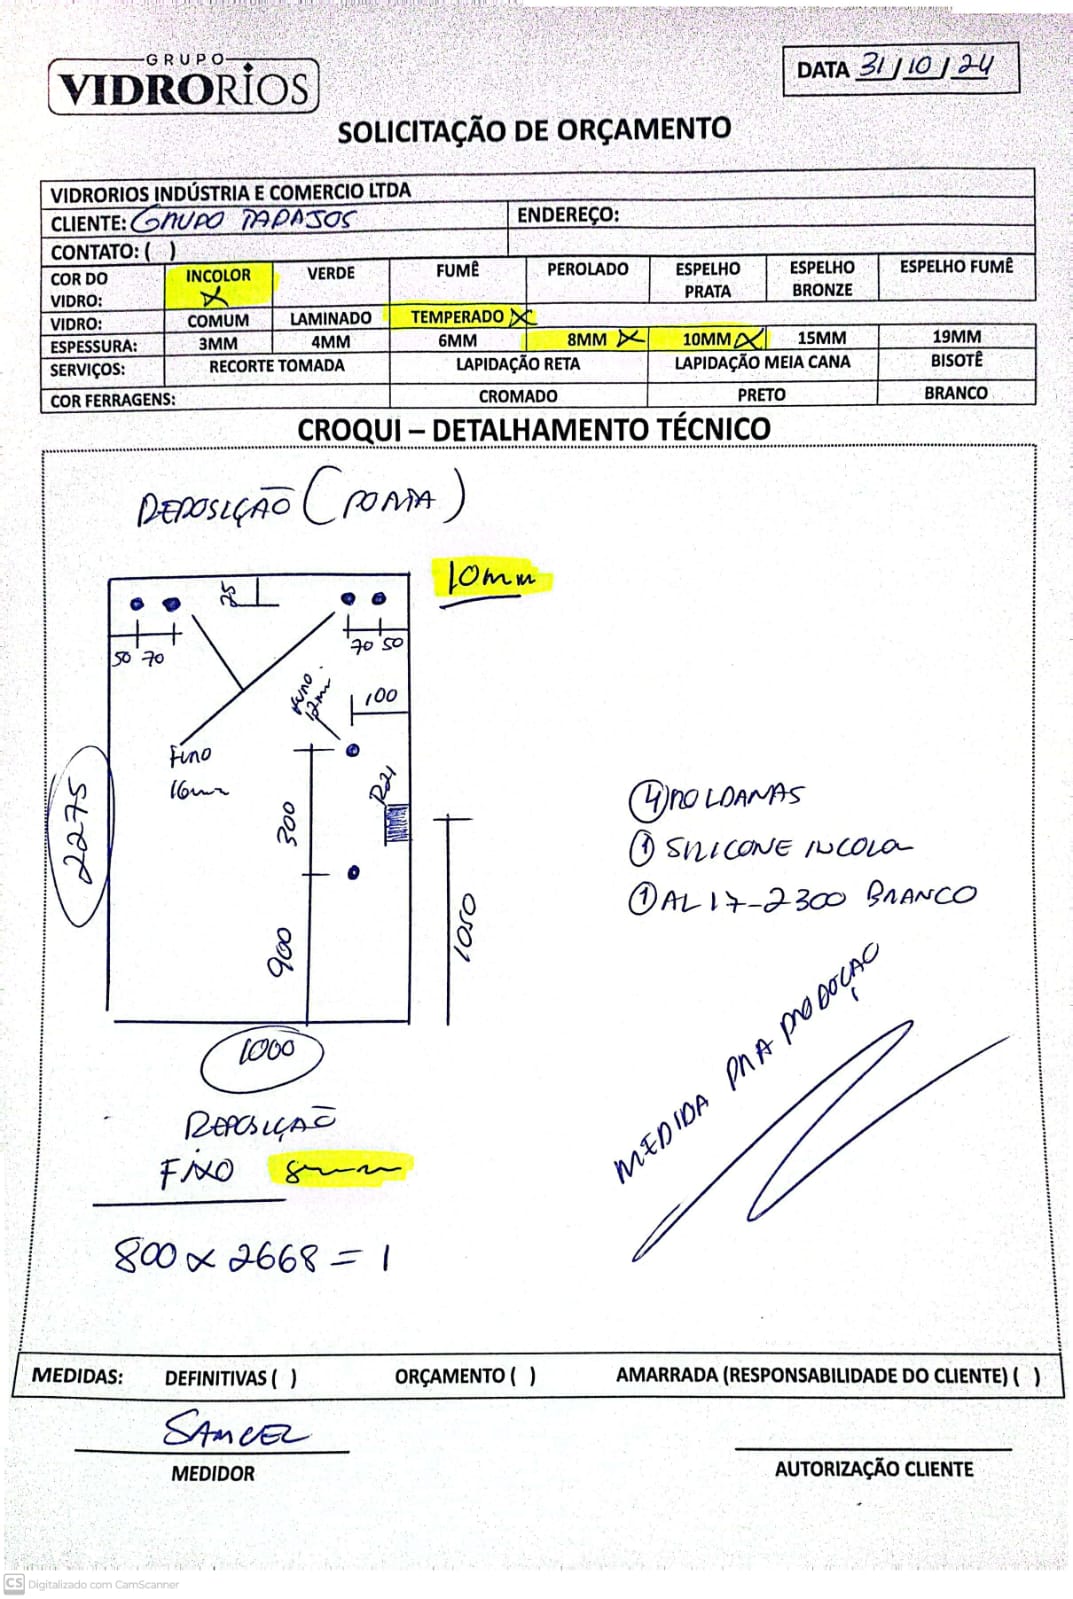 GRUPO
VIDRORIOS
DATA 31/10/24
SOLICITAÇÃO DE ORÇAMENTO
VIDRORIOS INDÚSTRIA E COMERCIO LTDA
CLIENTE: GRUPO TAPAJOS
ENDEREÇO:
CONTATO: ( )
COR DO VIDRO: INCOLOR X VERDE FUMÊ PEROLADO ESPELHO PRATA ESPELHO BRONZE ESPELHO FUMÊ
VIDRO: COMUM LAMINADO TEMPERADO X
ESPESSURA: 3MM 4MM 6MM 8MM X 10MM X 15MM 19MM
SERVIÇOS: RECORTE TOMADA LAPIDAÇÃO RETA LAPIDAÇÃO MEIA CANA BISOTÊ
COR FERRAGENS: CROMADO PRETO BRANCO
CROQUI – DETALHAMENTO TÉCNICO
REPOSIÇÃO (PORTA)
10mm
25
50 70
70 50
Furo 12mm
100
Furo
16mm
R21
2275
300
900
1050
1000
④ ROLDANAS
① SILICONE INCOLOR
① AL 17-2300 BRANCO
MEDIDA PRA PRODUÇÃO
REPOSIÇÃO
FIXO 8mm
800 x 2668 = 1
MEDIDAS: DEFINITIVAS ( ) ORÇAMENTO ( ) AMARRADA (RESPONSABILIDADE DO CLIENTE) ( )
SAMUEL
MEDIDOR
AUTORIZAÇÃO CLIENTE
CS Digitalizado com CamScanner